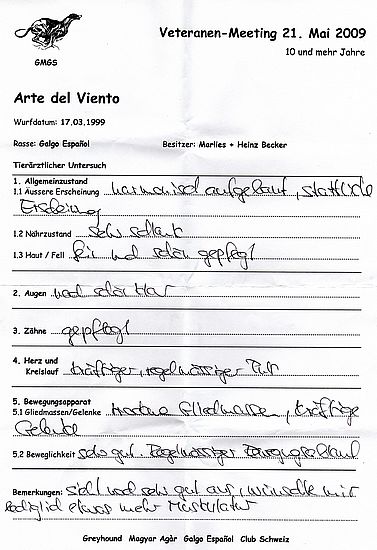 GMGS
Veteranen-Meeting 21. Mai 2009
10 und mehr Jahre
Arte del Viento
Wurfdatum: 17.03.1999
Rasse: Galgo Español Besitzer: Marlies + Heinz Becker
Tierärztlicher Untersuch
1. Allgemeinzustand
1.1 Äussere Erscheinung harmonisch aufgebaut, stattliche
Erscheinung
1.2 Nährzustand sehr schlank
1.3 Haut / Fell fein und schön gepflegt
2. Augen noch schön klar
3. Zähne gepflegt
4. Herz und
Kreislauf kräftiger, regelmässiger Puls
5. Bewegungsapparat
5.1 Gliedmassen/Gelenke trockene Gliedmassen, kräftige
Gelenke
5.2 Beweglichkeit sehr gut. Regelmässiger Bewegungsablauf
Bemerkungen: sieht noch sehr gut aus, wünschte mir
lediglich etwas mehr Muskulatur
Greyhound Magyar Agàr Galgo Español Club Schweiz